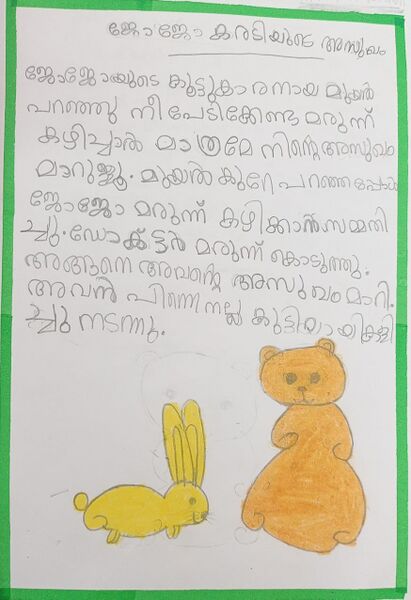 ജോജോ കരടിയുടെ അസുഖം
ജോജോയുടെ കൂട്ടുകാരനായ മുയൽ
പറഞ്ഞു നീ പേടിക്കേണ്ട മരുന്ന്
കഴിച്ചാൽ മാത്രമേ നിന്റെ അസുഖം
മാറുജൂ. മുയൽ കുറേ പറഞ്ഞപ്പോൾ
ജോജോ മരുന്ന് കഴിക്കാൻ സമ്മതി
ച്ചു. ഡോക്ട്ടർ മരുന്ന് കൊടുത്തു.
അങ്ങനെ അവന്റെ അസുഖം മാറി.
അവൻ പിന്നെ നല്ല കുട്ടിയായി കളി
ച്ചു നടന്നു.